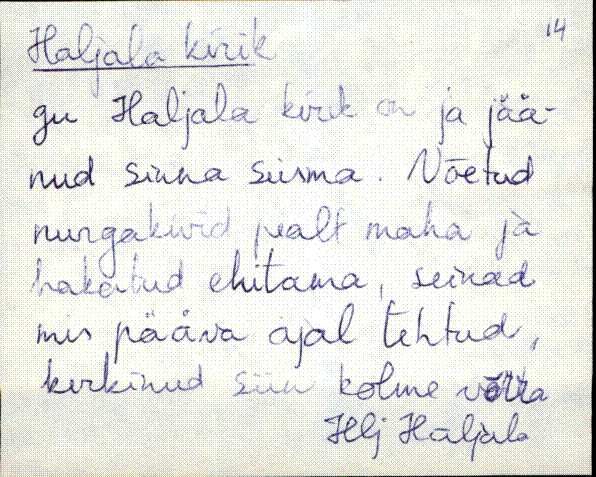 14
Haljala kirik
gu Haljala kirik on ja jää-
nud sinna seisma. Võetud
nurgakivid pealt maha ja
hakatud ehitama, seinad
mis pääva ajal tehtud,
kerkinud siin kolme võrra
Hlj Haljala